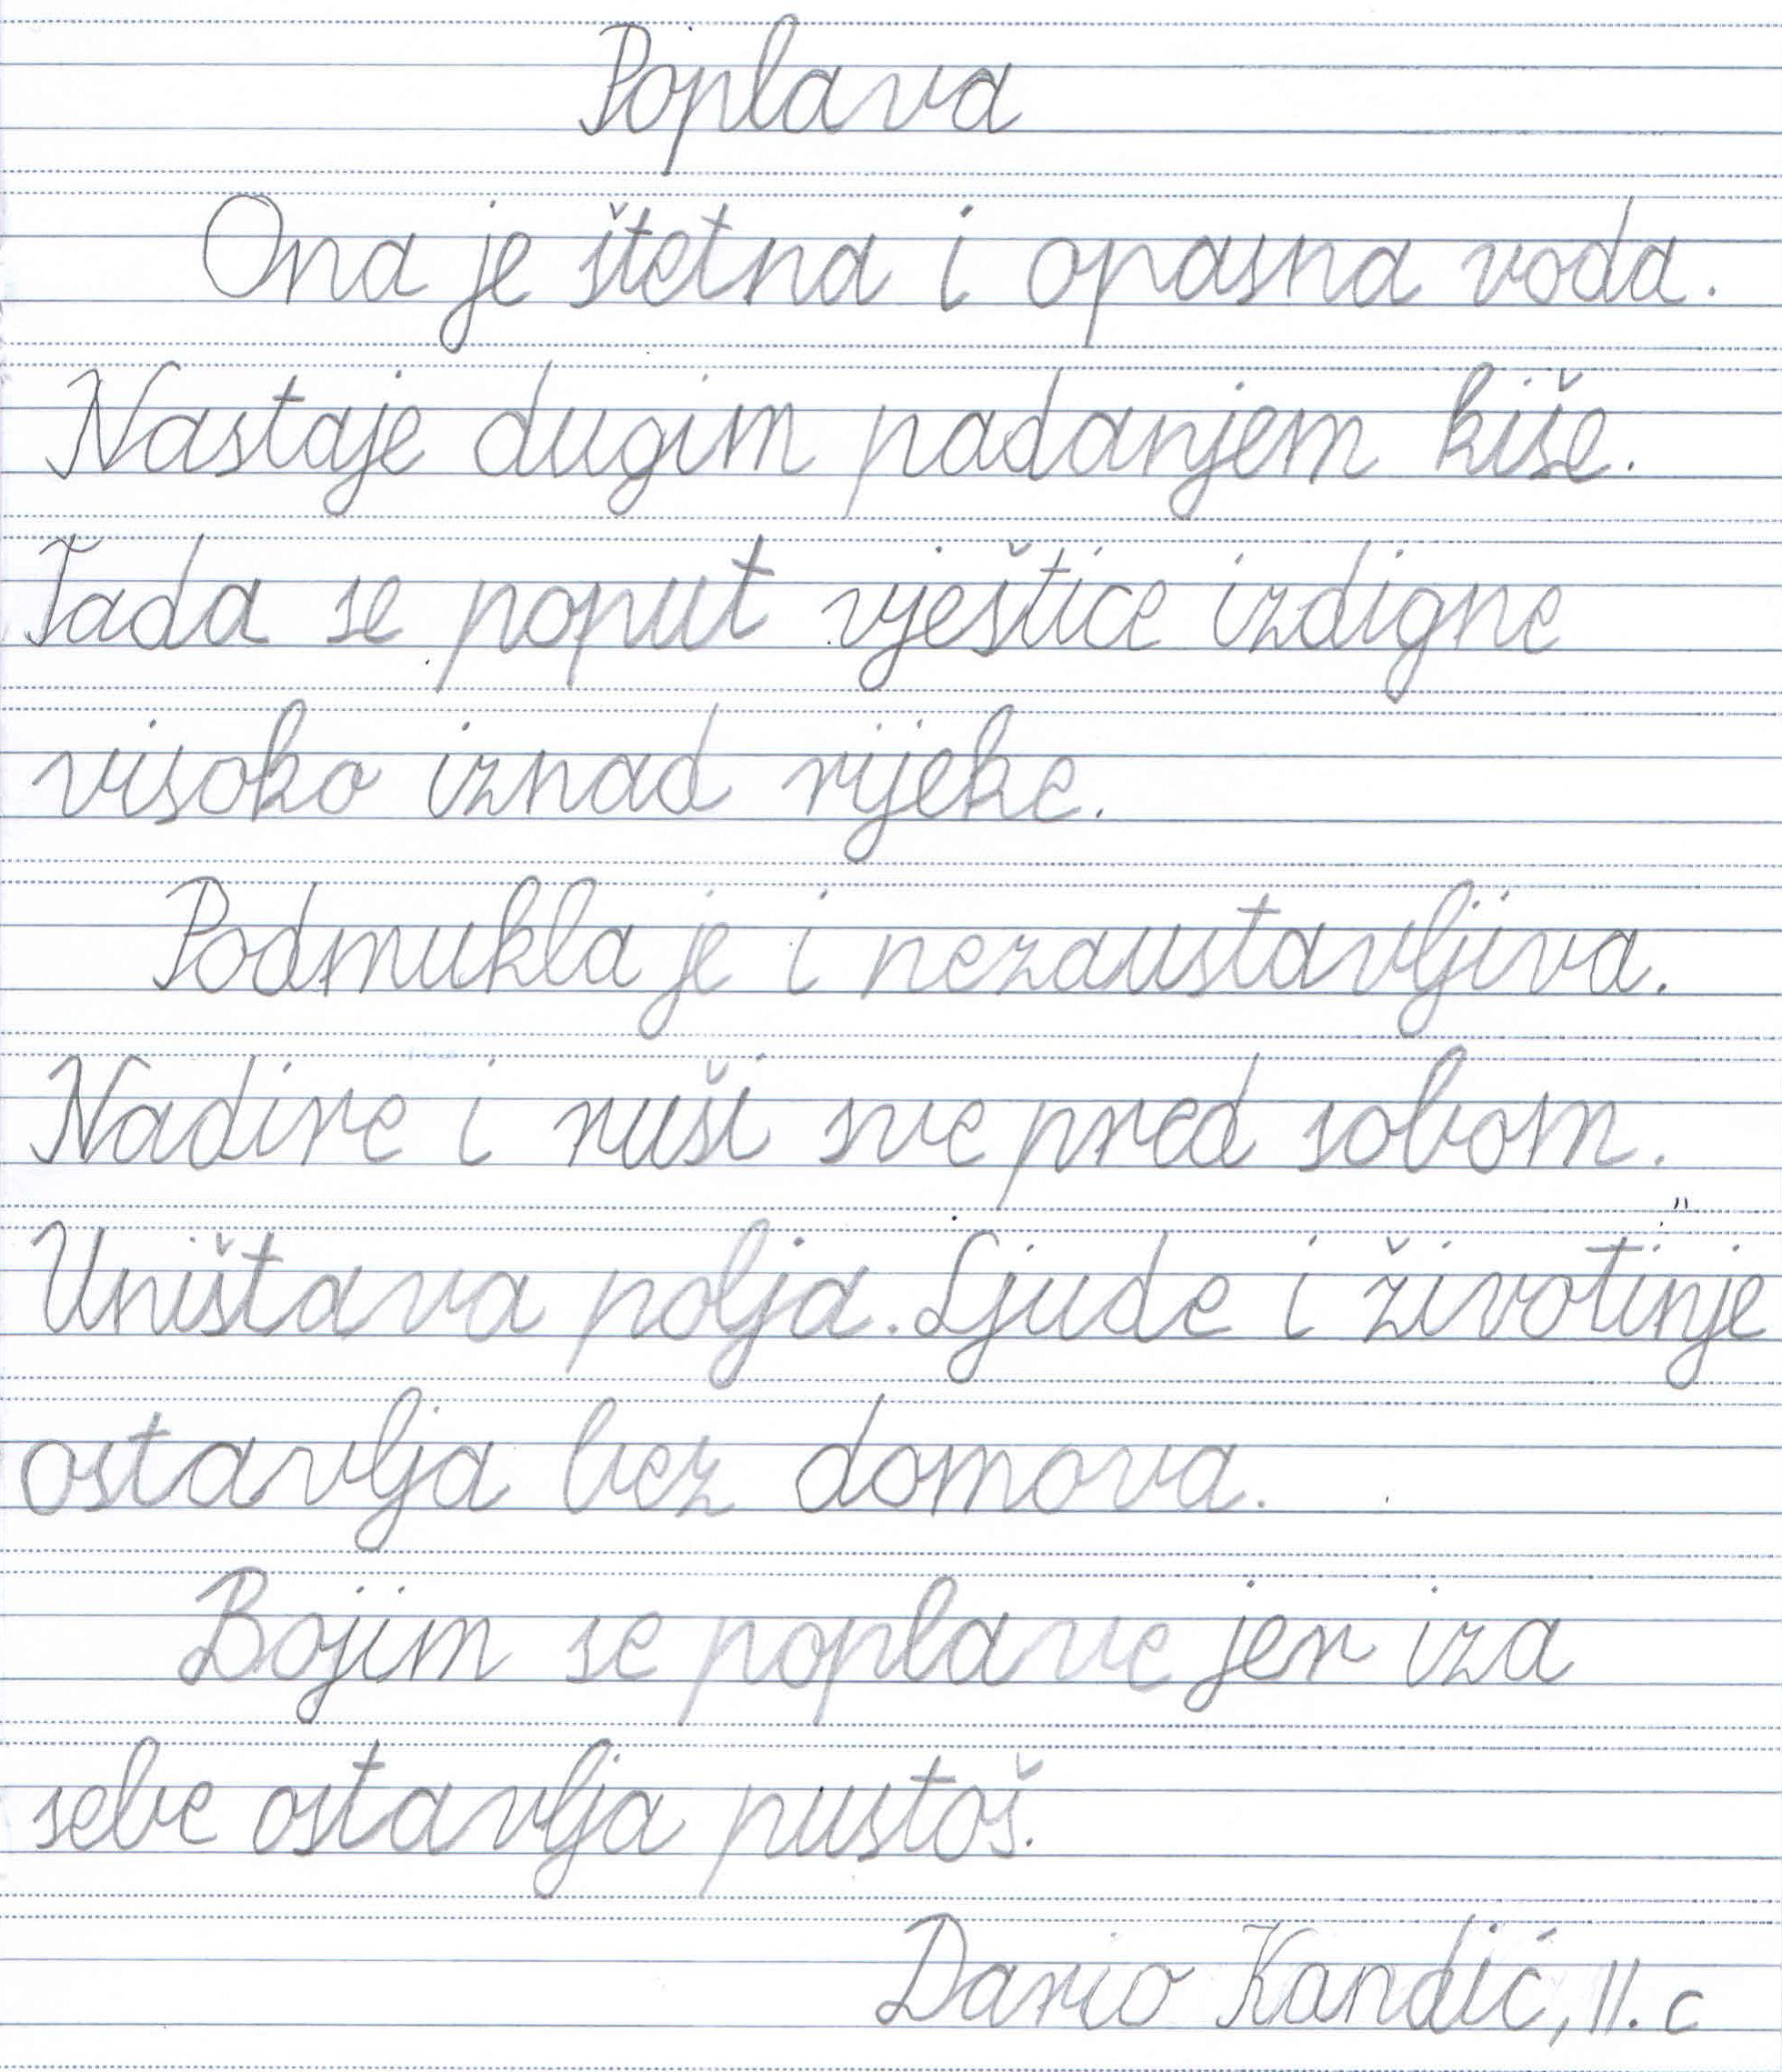 Poplava
Ona je štetna i opasna voda.
Nastaje dugim padanjem kiše.
Tada se poput vještice izdigne
visoko iznad rijeke.
Podmukla je i nezaustavljiva.
Nadire i ruši sve pred sobom.
Uništava polja. Ljude i životinje
ostavlja bez domova.
Bojim se poplave jer iza
sebe ostavlja pustoš.
Dario Kandić, II. c